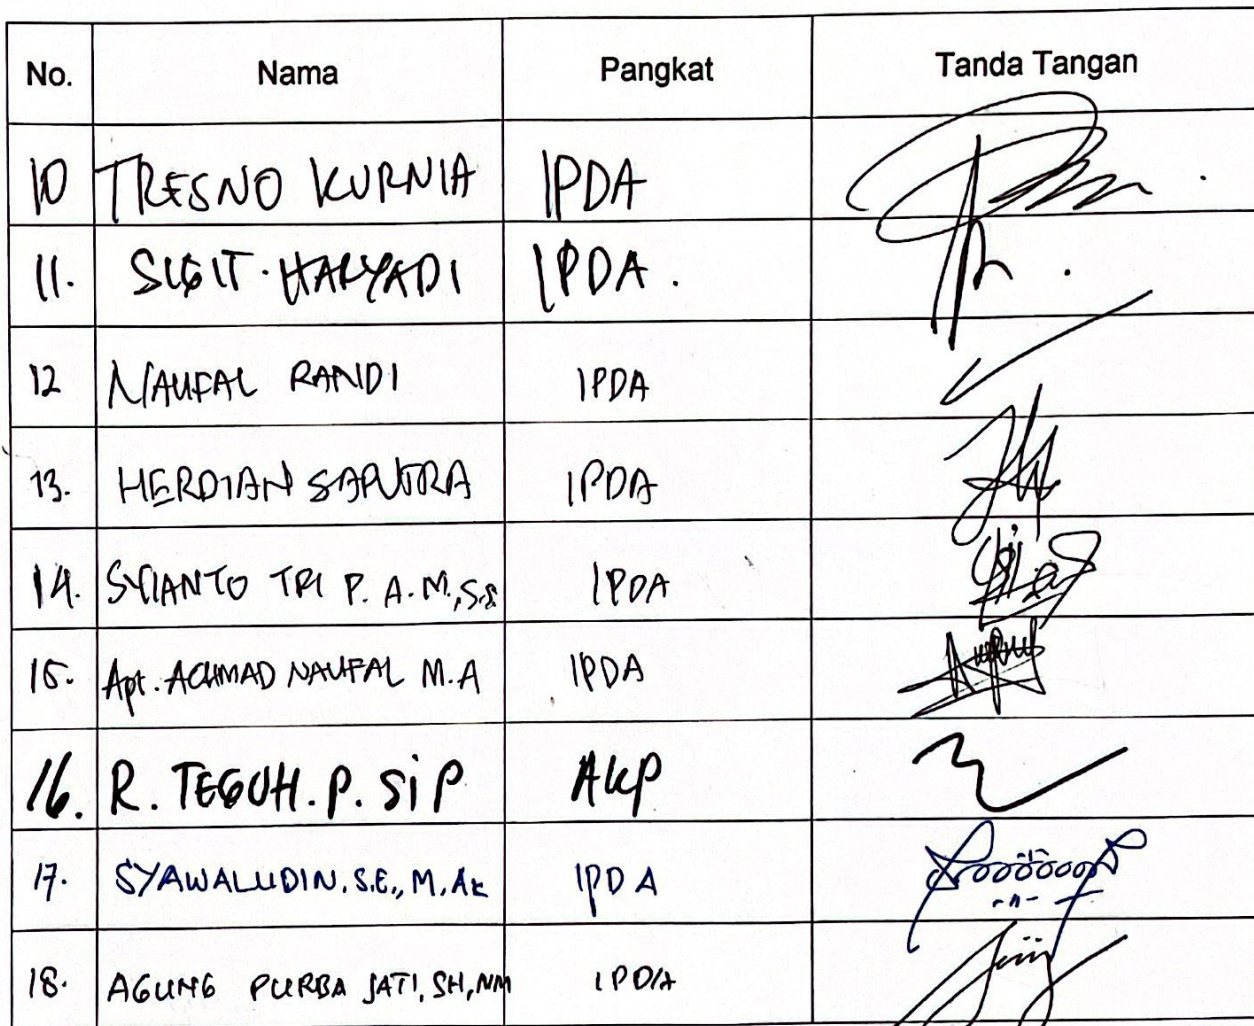 No. Nama Pangkat Tanda Tangan
10 TRESNO KURNIA IPDA
11. SIGIT HARYADI IPDA.
12 NAUFAL RANDI IPDA
13. HERDIAN SAPUTRA IPDA
14. TRI P. A.M., IPDA
15. Apt. ACHMAD NAUFAL M.A IPDA
16. R. TEGUH. P. SiP AKP
17. SYAWALUDIN, S.E., M.Ak IPDA
18. AGUNG PURBA JATI, SH, IPDA